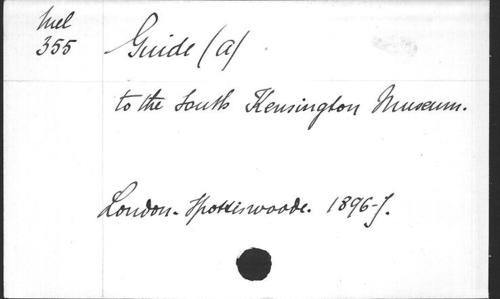 Mel
355
Guide (a)
to the South Kensington Museum.
London. Spottiswoode. 1896-f.